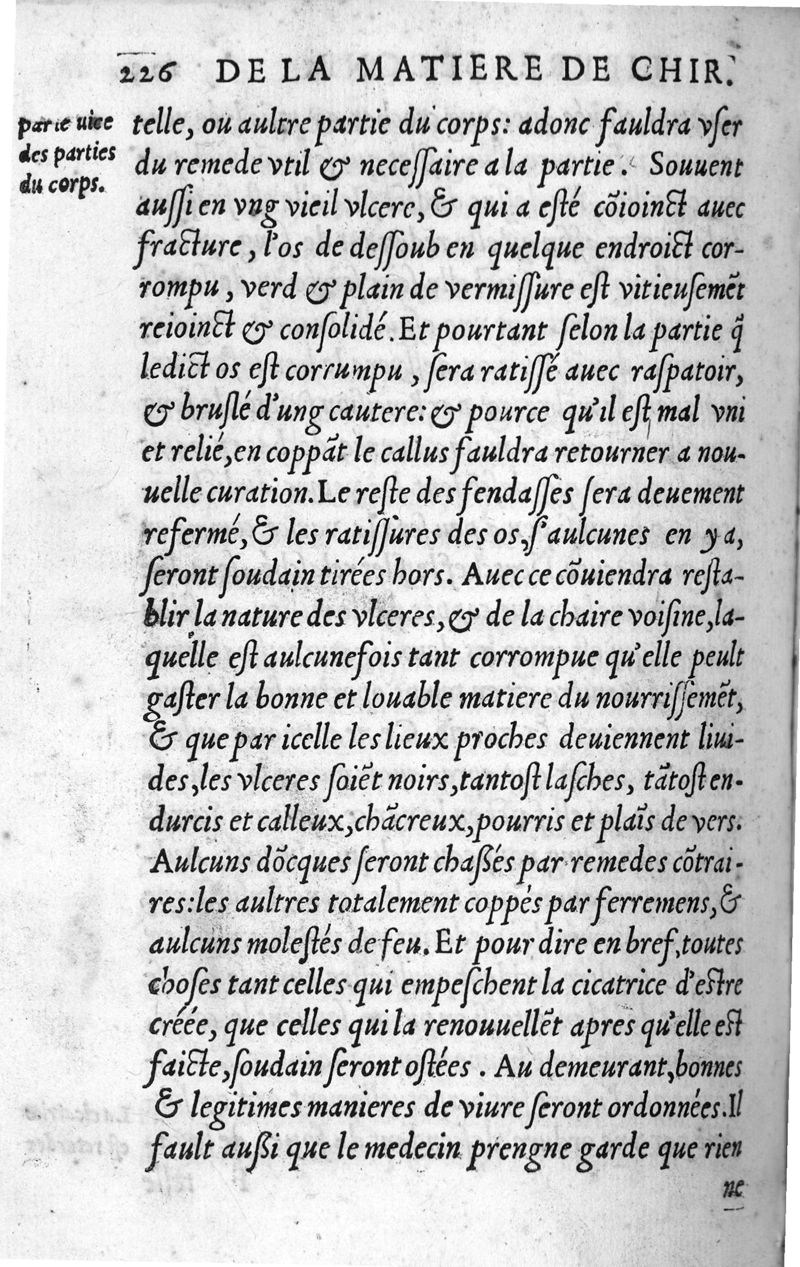 226 DE LA MATIERE DE CHIR.
partie uice
des parties
du corps.
telle, ou aultre partie du corps: adonc fauldra vſer
du remede vtil & neceſſaire a la partie. Souuent
auſſi en vng vieil vlcere, & qui a eſté cõioinct auec
fracture, l'os de deſſoub en quelque endroict cor-
rompu, verd & plain de vermiſſure eſt vitieuſemẽt
reioinct & conſolidé. Et pourtant ſelon la partie q̃
ledict os eſt corrumpu, ſera ratiſſé auec raſpatoir,
& bruſlé d'ung cautere: & pource qu'il eſt mal vni
et relié, en coppãt le callus fauldra retourner a nou-
uelle curation. Le reſte des fendaſſes ſera deuement
refermé, & les ratiſſures des os, ſ'aulcunes en y a,
ſeront ſoudain tirées hors. Auec ce cõuiendra reſta-
blir la nature des vlceres, & de la chaire voiſine, la-
quelle eſt aulcunefois tant corrompue qu'elle peult
gaſter la bonne et louable matiere du nourriſſemẽt,
& que par icelle les lieux proches deuiennent liui-
des, les vlceres ſoiẽt noirs, tantoſt laſches, tãtoſt en-
durcis et calleux, chãcreux, pourris et plaĩs de vers.
Aulcuns dõcques ſeront chaſſés par remedes cõtrai-
res: les aultres totalement coppés par ferremens, &
aulcuns moleſtés de feu. Et pour dire en bref, toutes
choſes tant celles qui empeſchent la cicatrice d'eſtre
créée, que celles qui la renouuellẽt apres qu'elle eſt
faicte, ſoudain ſeront oſtées. Au demeurant, bonnes
& legitimes manieres de viure ſeront ordonnées. Il
fault auſſi que le medecin prengne garde que rien
ne